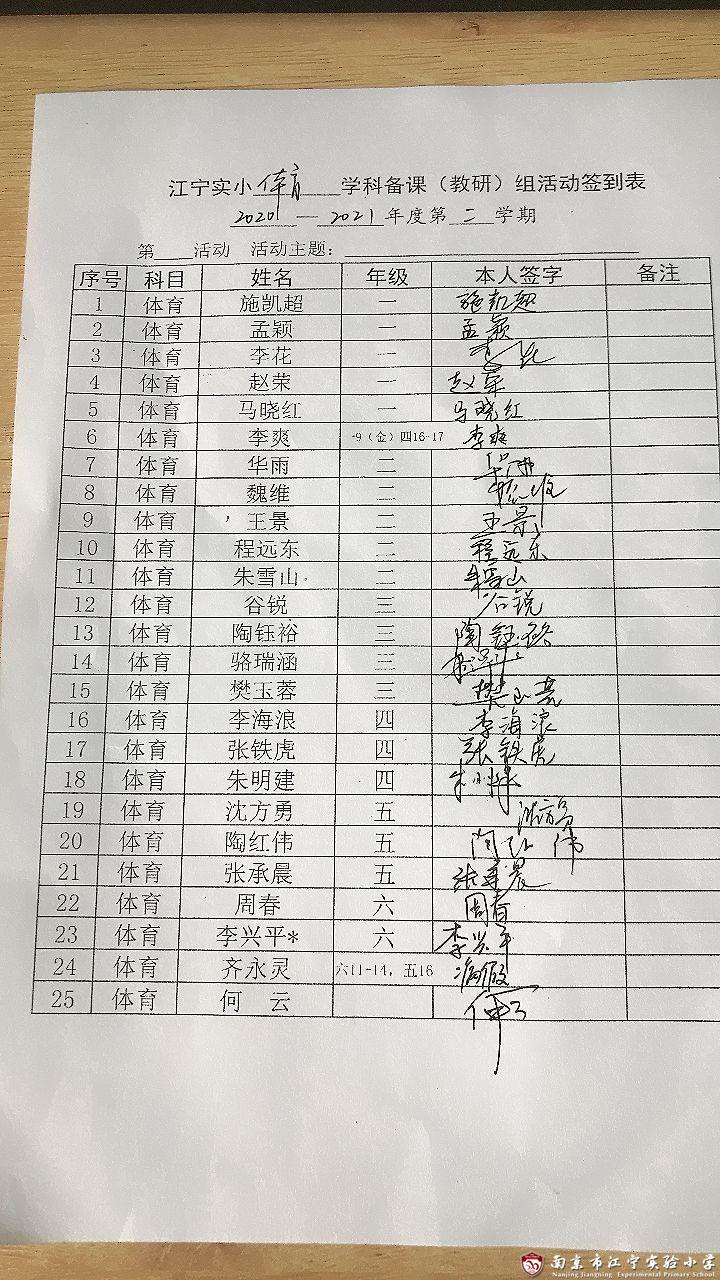 江宁实小 体育 学科备课（教研）组活动签到表
2020 — 2021 年度第 二 学期
第 活动 活动主题：
序号 科目 姓名 年级 本人签字 备注
1 体育 施凯超 一 施凯超
2 体育 孟颖 一 孟颖
3 体育 李花 一 李花
4 体育 赵荣 一 赵荣
5 体育 马晓红 一 马晓红
6 体育 李爽 -9（金）四16-17 李爽
7 体育 华雨 二 华雨
8 体育 魏维 二 魏维
9 体育 王景 二 王景
10 体育 程远东 二 程远东
11 体育 朱雪山 二 朱雪山
12 体育 谷锐 三 谷锐
13 体育 陶钰裕 三 陶钰裕
14 体育 骆瑞涵 三
15 体育 樊玉蓉 三 樊玉蓉
16 体育 李海浪 四 李海浪
17 体育 张铁虎 四 张铁虎
18 体育 朱明建 四 朱明建
19 体育 沈方勇 五 沈方勇
20 体育 陶红伟 五 陶红伟
21 体育 张承晨 五 张承晨
22 体育 周春 六 周春
23 体育 李兴平* 六 李兴平
24 体育 齐永灵 六11-14，五16 病假
25 体育 何 云
南京市江宁实验小学
Nanjing Jiangning Experimental Primary School